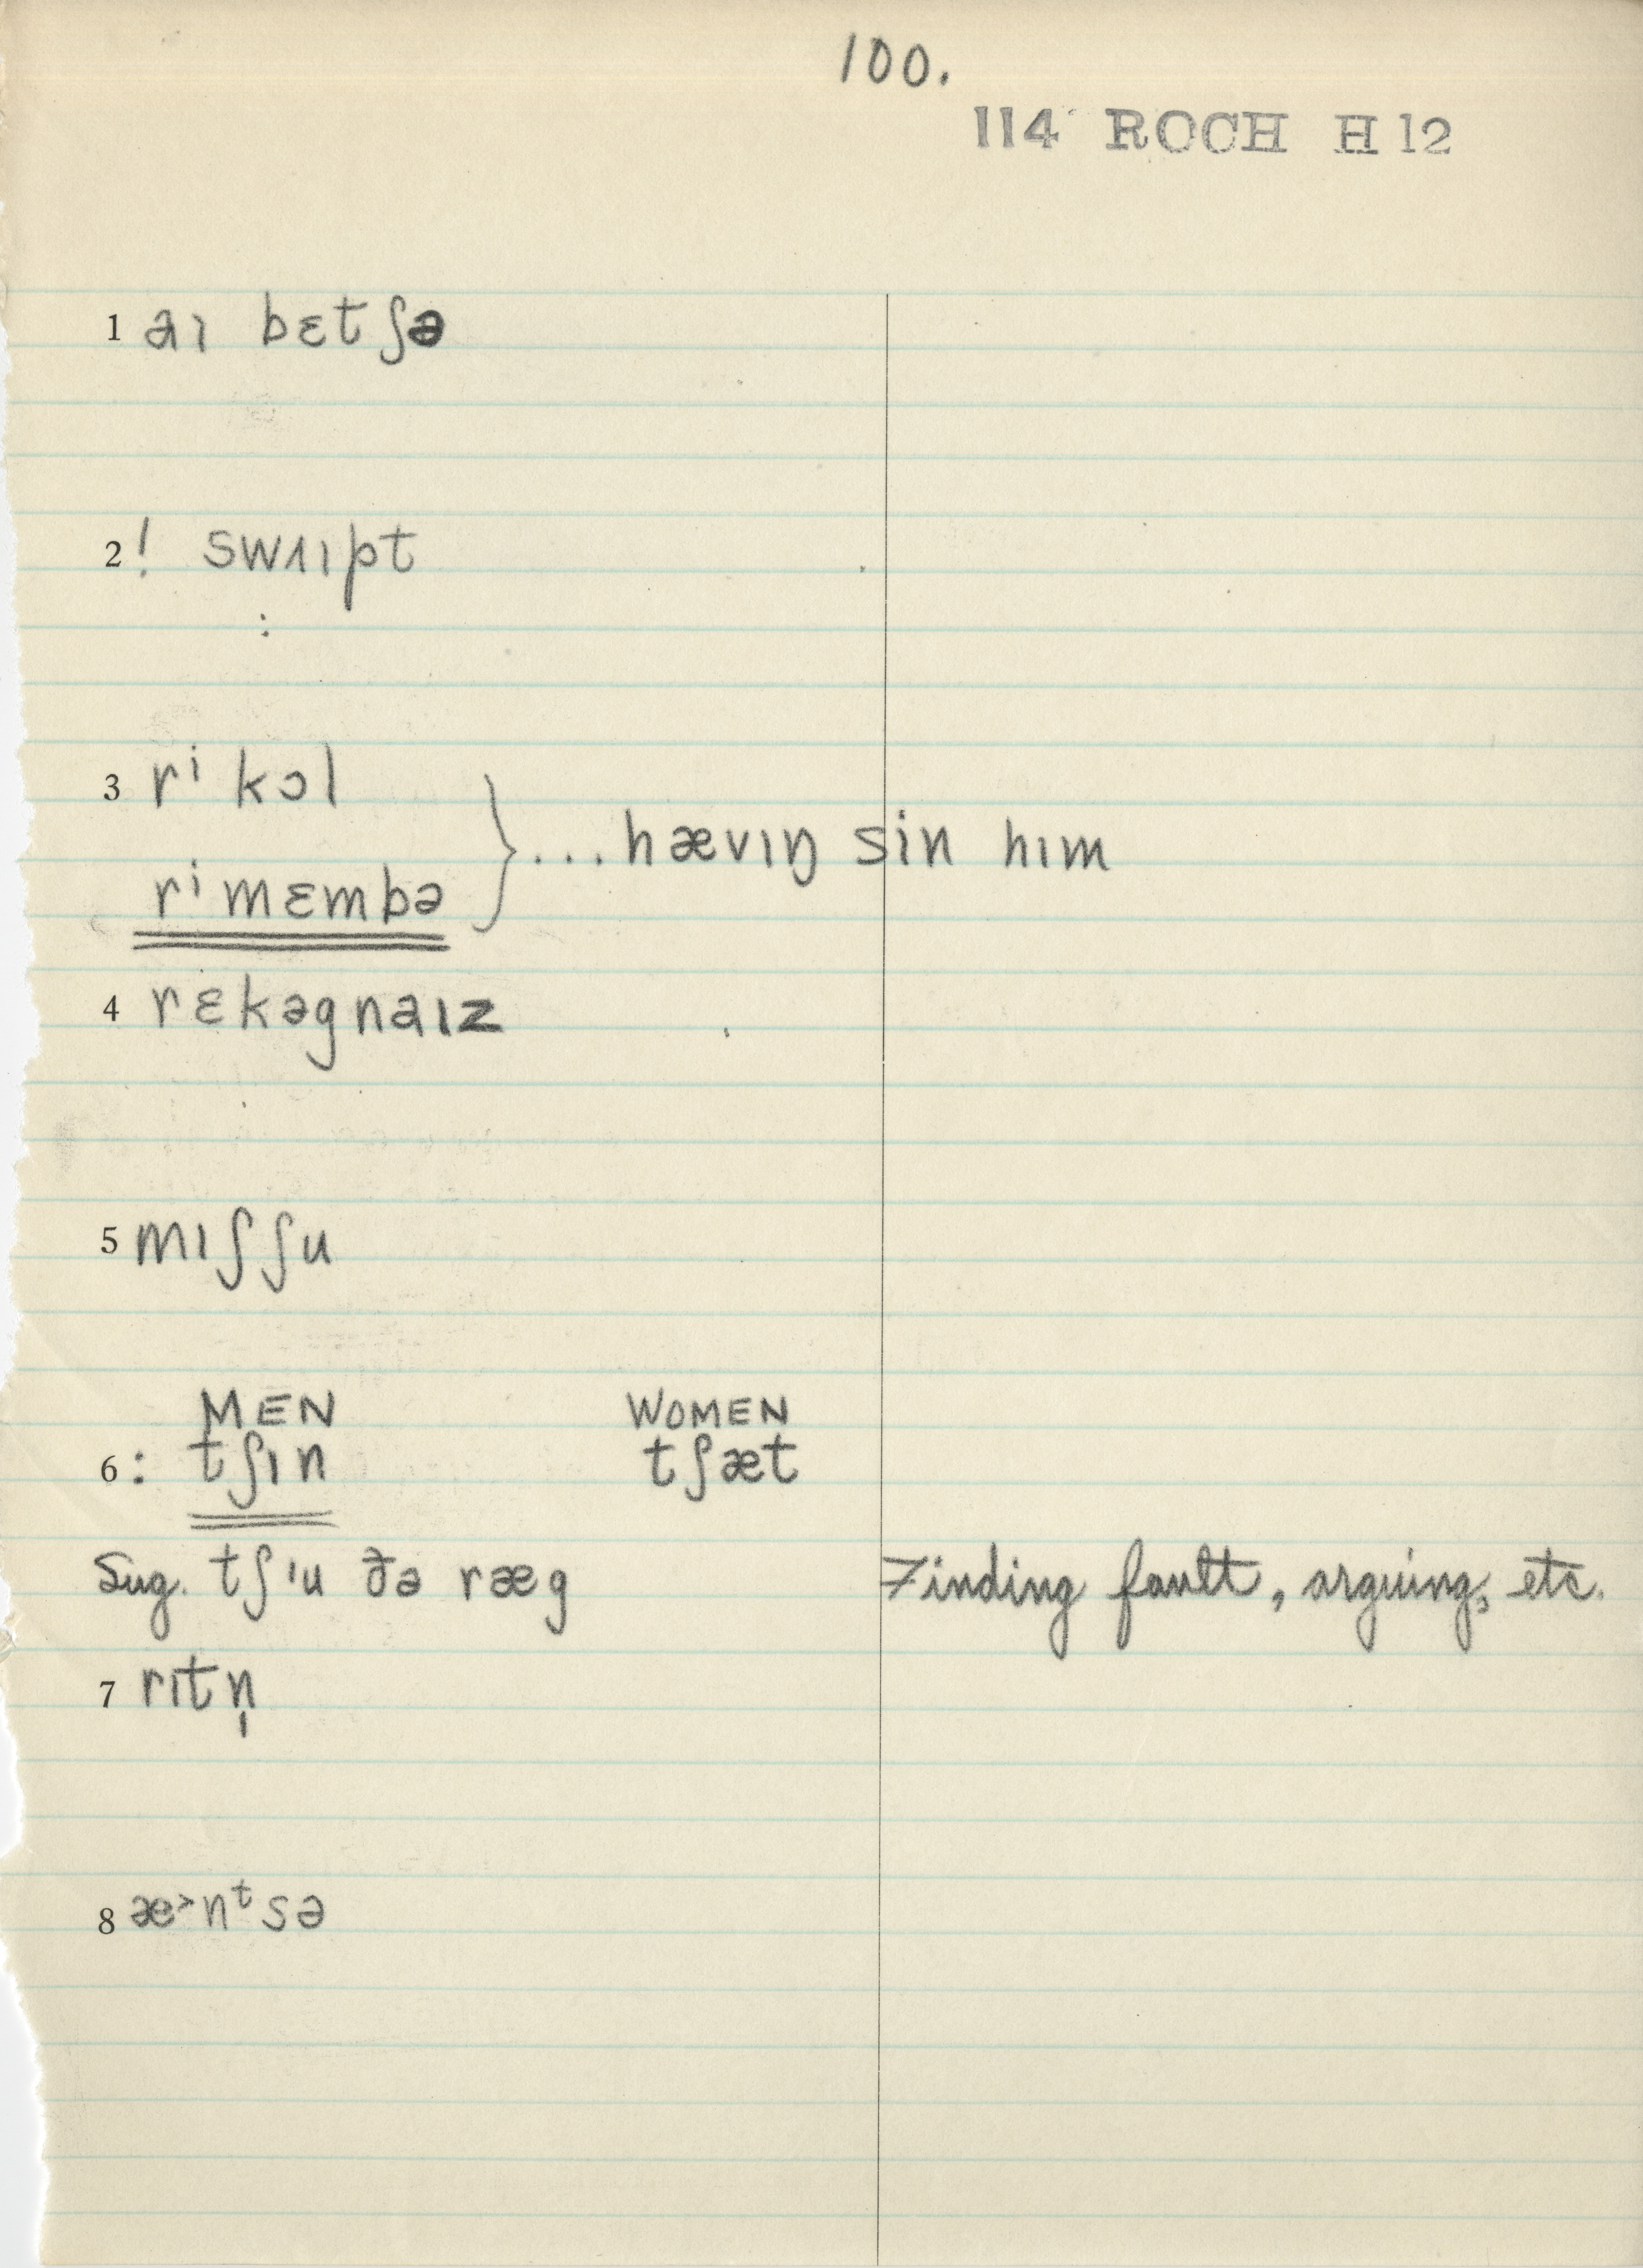 100.
114 ROCH H 12
1 aɪ bɛtʃə
2 ! swaɪpt
:
3 rⁱkɔl
} ...hævɪŋ sin hɪm
rⁱmɛmbə
4 rɛkəgnaɪz
5 mɪʃʃu
MEN WOMEN
6 : tʃɪn tʃæt
Sug. tʃɪu ðə ræg Finding fault, arguing, etc.
7 rɪtn̩
8 æ˃nᵗsə